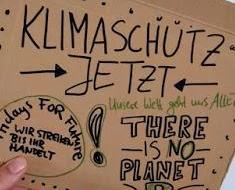 KLIMASCHUTZ
JETZT
Unsere Welt geht uns
Fridays FOR Future
WIR STREIKEN
BIS IHR
HANDELT
THERE
IS NO
PLANET
B